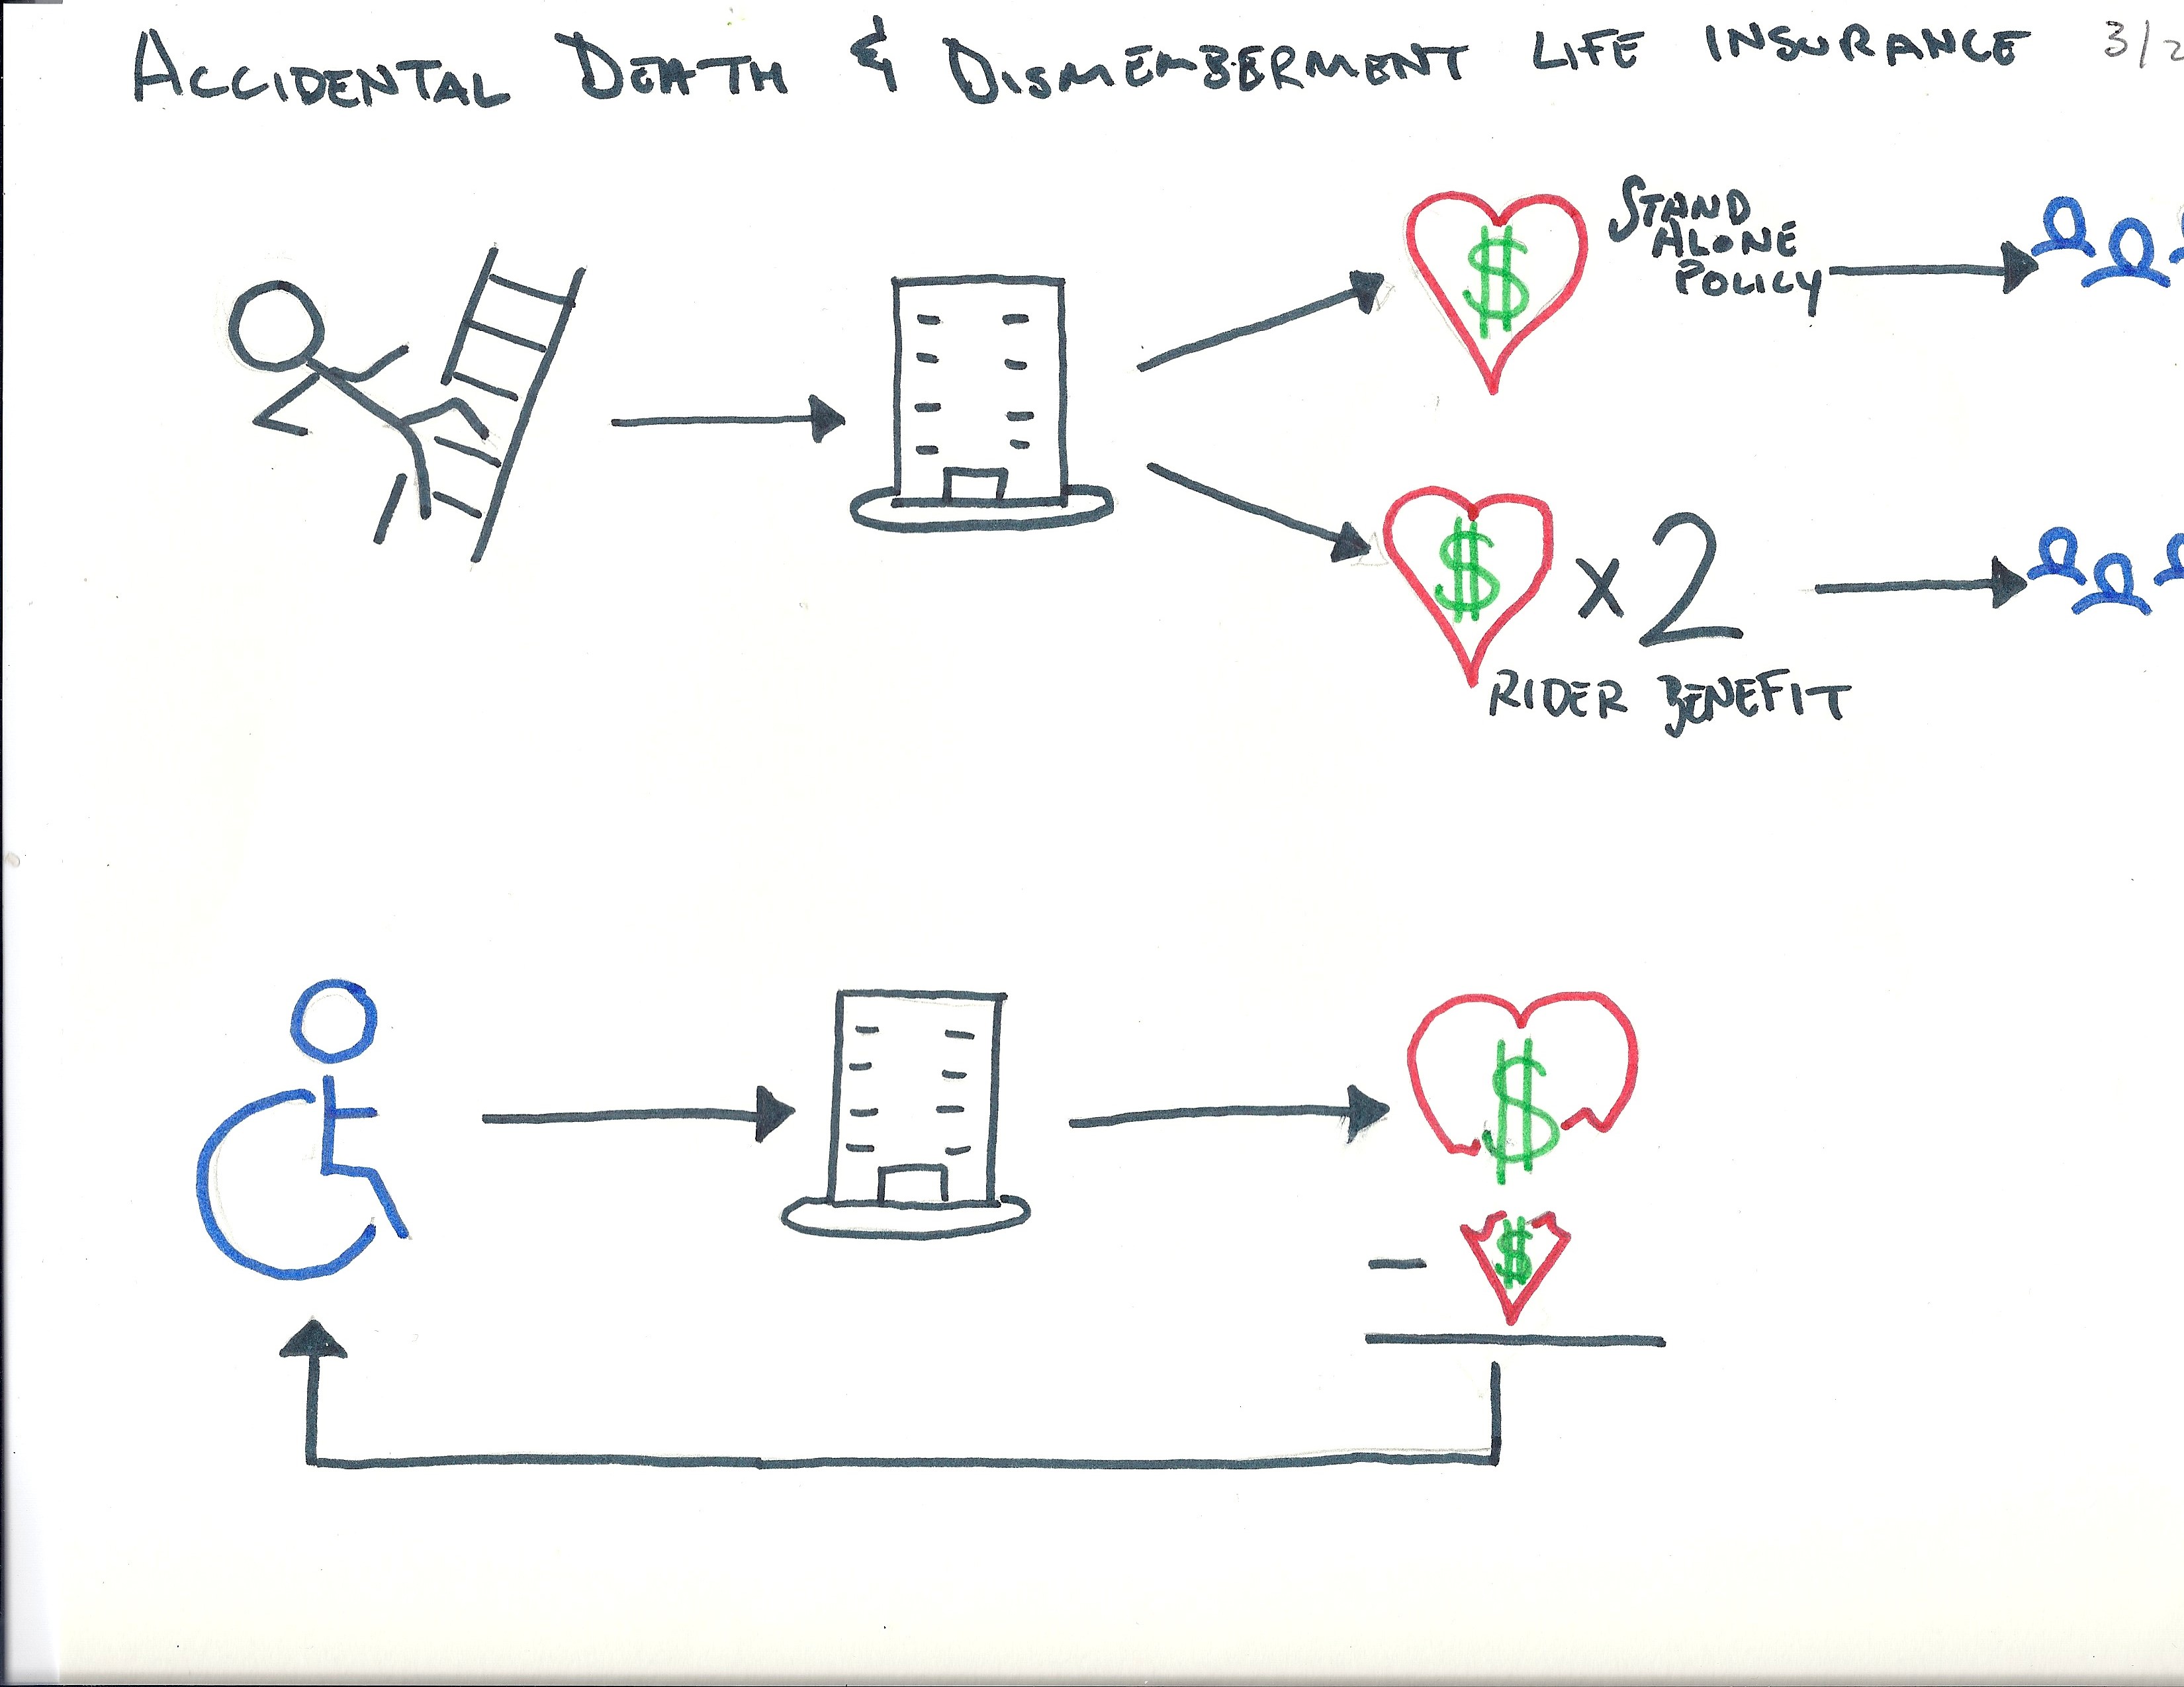 ACCIDENTAL DEATH & DISMEMBERMENT LIFE INSURANCE 3/2
STAND
ALONE
POLICY
$
$ x 2
RIDER BENEFIT
$
- $